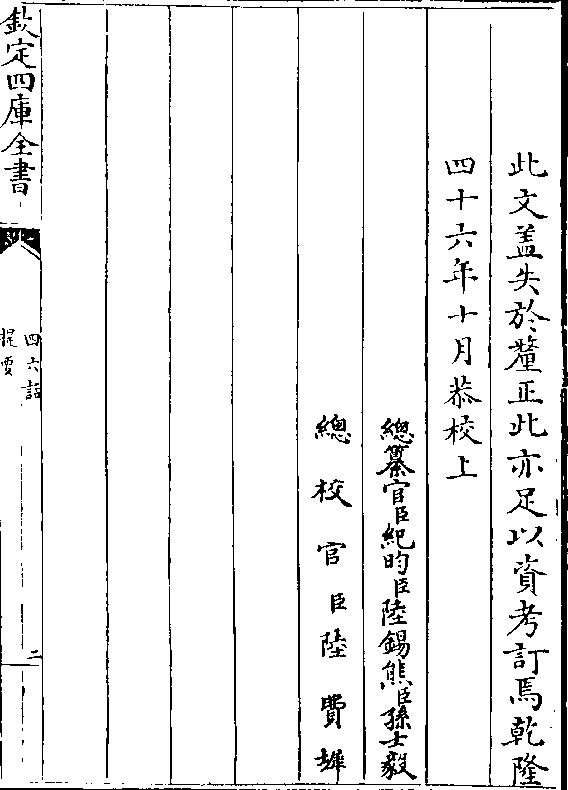 此文蓋失於釐正此亦足以資考訂焉乾隆
四十六年十月恭校上
總纂官臣紀昀臣陸錫熊臣孫士毅
總校官臣陸費墀
欽定四庫全書
四六話
提要
二